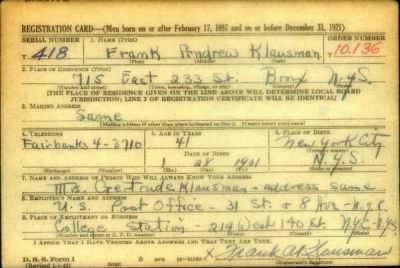 REGISTRATION CARD—(Men born on or after February 17, 1897 and on or before December 31, 1921)
SERIAL NUMBER 1. NAME (Print) ORDER NUMBER
T 418 Frank Andrew Klausman 10,136
(First) (Middle) (Last)
2. PLACE OF RESIDENCE (Print)
715 East 233 St. Bronx N.Y.S.
(Number and street) (Town, township, village, or city) (County) (State)
[THE PLACE OF RESIDENCE GIVEN ON THE LINE ABOVE WILL DETERMINE LOCAL BOARD
JURISDICTION; LINE 2 OF REGISTRATION CERTIFICATE WILL BE IDENTICAL]
3. MAILING ADDRESS
Same
[Mailing address if other than place indicated on line 2. If same insert word same]
4. TELEPHONE 5. AGE IN YEARS 6. PLACE OF BIRTH
Fairbanks 4-2710 41 New York City
DATE OF BIRTH
1 28 1901 N.Y.S.
7. NAME AND ADDRESS OF PERSON WHO WILL ALWAYS KNOW YOUR ADDRESS
Mrs. Gertrude Klausman - address same
8. EMPLOYER'S NAME AND ADDRESS
U.S. Post Office - 31 St. & 8 Ave - N.Y.C.
9. PLACE OF EMPLOYMENT OR BUSINESS
College Station - 219 West 140 St. NYC - N.Y.S.
(Number and street or R. F. D. number) (Town) (County) (State)
I AFFIRM THAT I HAVE VERIFIED ABOVE ANSWERS AND THAT THEY ARE TRUE.
D. S. S. Form 1
Frank A. Klausman
(Registrant's signature)